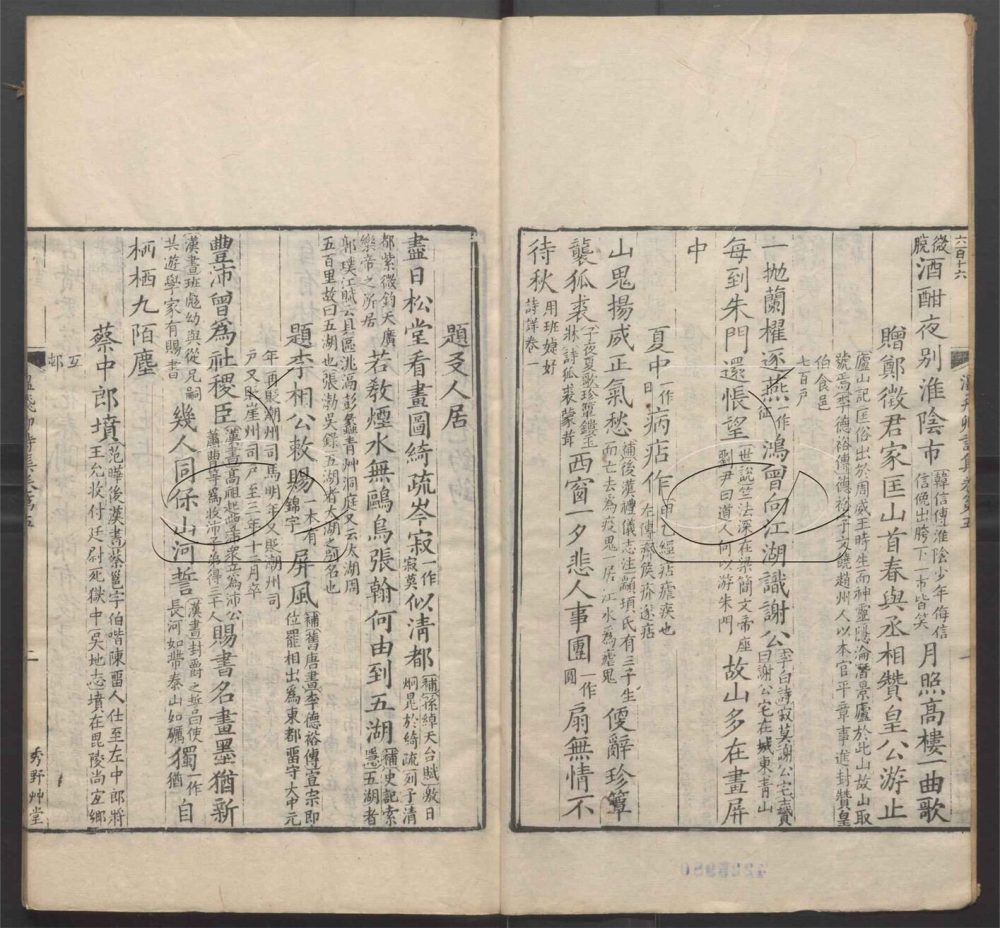 微
曉酒酣夜别淮陰市韓信傳淮陰少年侮信信俛出胯下一市皆笑月照高樓一曲歌
贈鄭徵君家匡山首春與丞相贊皇公游止
廬山記匡俗出於周威王時生而神靈隱淪潛景廬於此山故山取
號焉李德裕傳德裕字文饒趙州人以本官平章事進封贊皇
伯食邑
七百户
一抛蘭櫂逐燕一作征鴻曾向江湖識謝公李白詩寂莫謝公宅志贊曰謝公宅在城東青山
每到朱門還悵望世説竺法深在梁簡文帝座劉尹曰道人何以游朱門故山多在畫屏
中
夏中一作日病痁作甲乙經痁瘧疾也左傳齊侯疥遂痁
山鬼揚威正氣愁補後漢禮儀志注顓頊氏有三子生而亡去為疫鬼一居江水為虐鬼便辭珍簟
襲狐裘子夜夏歌珍簟鏤玉牀詩狐裘蒙茸西窗一夕悲人事團一作圓扇無情不
待秋用班婕妤詩詳卷一
題友人居
盡日松堂看畫圖綺疏岑寂一作寂莫似清都補孫綽天台賦皦日烱晃於綺疏列子清
都紫微鈞天廣樂帝之所居若敎煙水無鷗鳥張翰何由到五湖補史記索隱五湖者
郭璞江賦云具區洮滆彭蠡青艸洞庭又云太湖周
五百里故曰五湖也張勃吳録五湖者太湖之别名也
題李相公敕賜一本有錦字屏風補舊唐書李德裕傳宣宗即位罷相出為東都留守大中元
年再貶潮州司馬明年又貶潮州司
户又貶崖州司户至三年十二月卒
豐沛曾為社稷臣漢書高祖起豐沛衆立為沛公蕭曹等為收沛子弟得三千人賜書名畫墨猶新
漢書班彪幼與從兄嗣共遊學家有賜書幾人同保山河誓漢書封爵之誓曰使長河如帶泰山如礪獨一作猶自
栖栖九陌塵
蔡中郎墳范曄後漢書蔡邕字伯喈陳留人仕至左中郎將王允收付廷尉死獄中吴地志墳在毘陵尚宜鄉
互邨
秀野艸堂